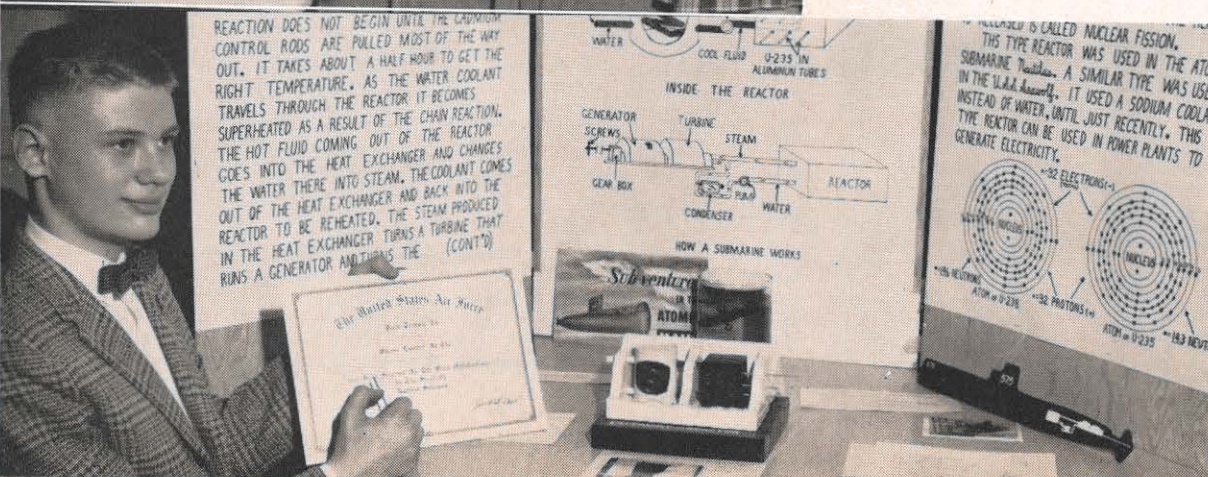 REACTION DOES NOT BEGIN UNTIL THE CADMIUM
CONTROL RODS ARE PULLED MOST OF THE WAY
OUT. IT TAKES ABOUT A HALF HOUR TO GET THE
RIGHT TEMPERATURE. AS THE WATER COOLANT
TRAVELS THROUGH THE REACTOR IT BECOMES
SUPERHEATED AS A RESULT OF THE CHAIN REACTION.
THE HOT FLUID COMING OUT OF THE REACTOR
GOES INTO THE HEAT EXCHANGER AND CHANGES
THE WATER THERE INTO STEAM. THE COOLANT COMES
OUT OF THE HEAT EXCHANGER AND BACK INTO THE
REACTOR TO BE REHEATED. THE STEAM PRODUCED
IN THE HEAT EXCHANGER TURNS A TURBINE THAT
RUNS A GENERATOR AND TURNS THE (CONT'D)
The United States Air Force
WATER
COOL FLUID
U-235 IN
ALUMINUM TUBES
INSIDE THE REACTOR
GENERATOR
TURBINE
SCREWS
STEAM
GEAR BOX
REACTOR
CONDENSER
PUMP
WATER
HOW A SUBMARINE WORKS
ATOM
IS CALLED NUCLEAR FISSION.
THIS TYPE REACTOR WAS USED IN THE
SUBMARINE Nautilus. A SIMILAR TYPE WAS
IN THE U.S.S. Seawolf. IT USED A SODIUM
INSTEAD OF WATER, UNTIL JUST RECENTLY. THIS
TYPE REACTOR CAN BE USED IN POWER PLANTS TO
GENERATE ELECTRICITY.
92 ELECTRONS(-)
NUCLEUS
NUCLEUS
NEUTRONS
92 PROTONS(+)
ATOM OF U-236
ATOM OF U-235
143
575